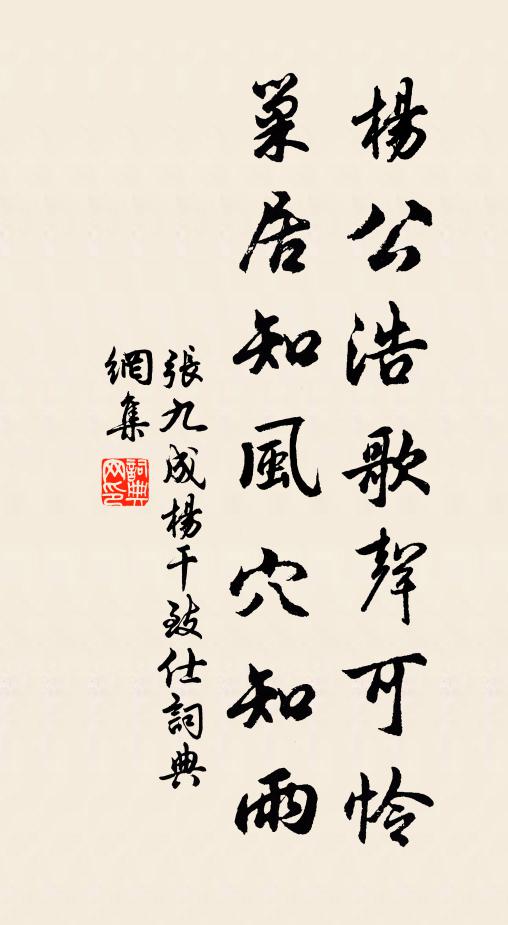 楊公浩歌聲可怜
巢居知風穴知雨
張九成楊干致仕詞典
網集
詞典
网印